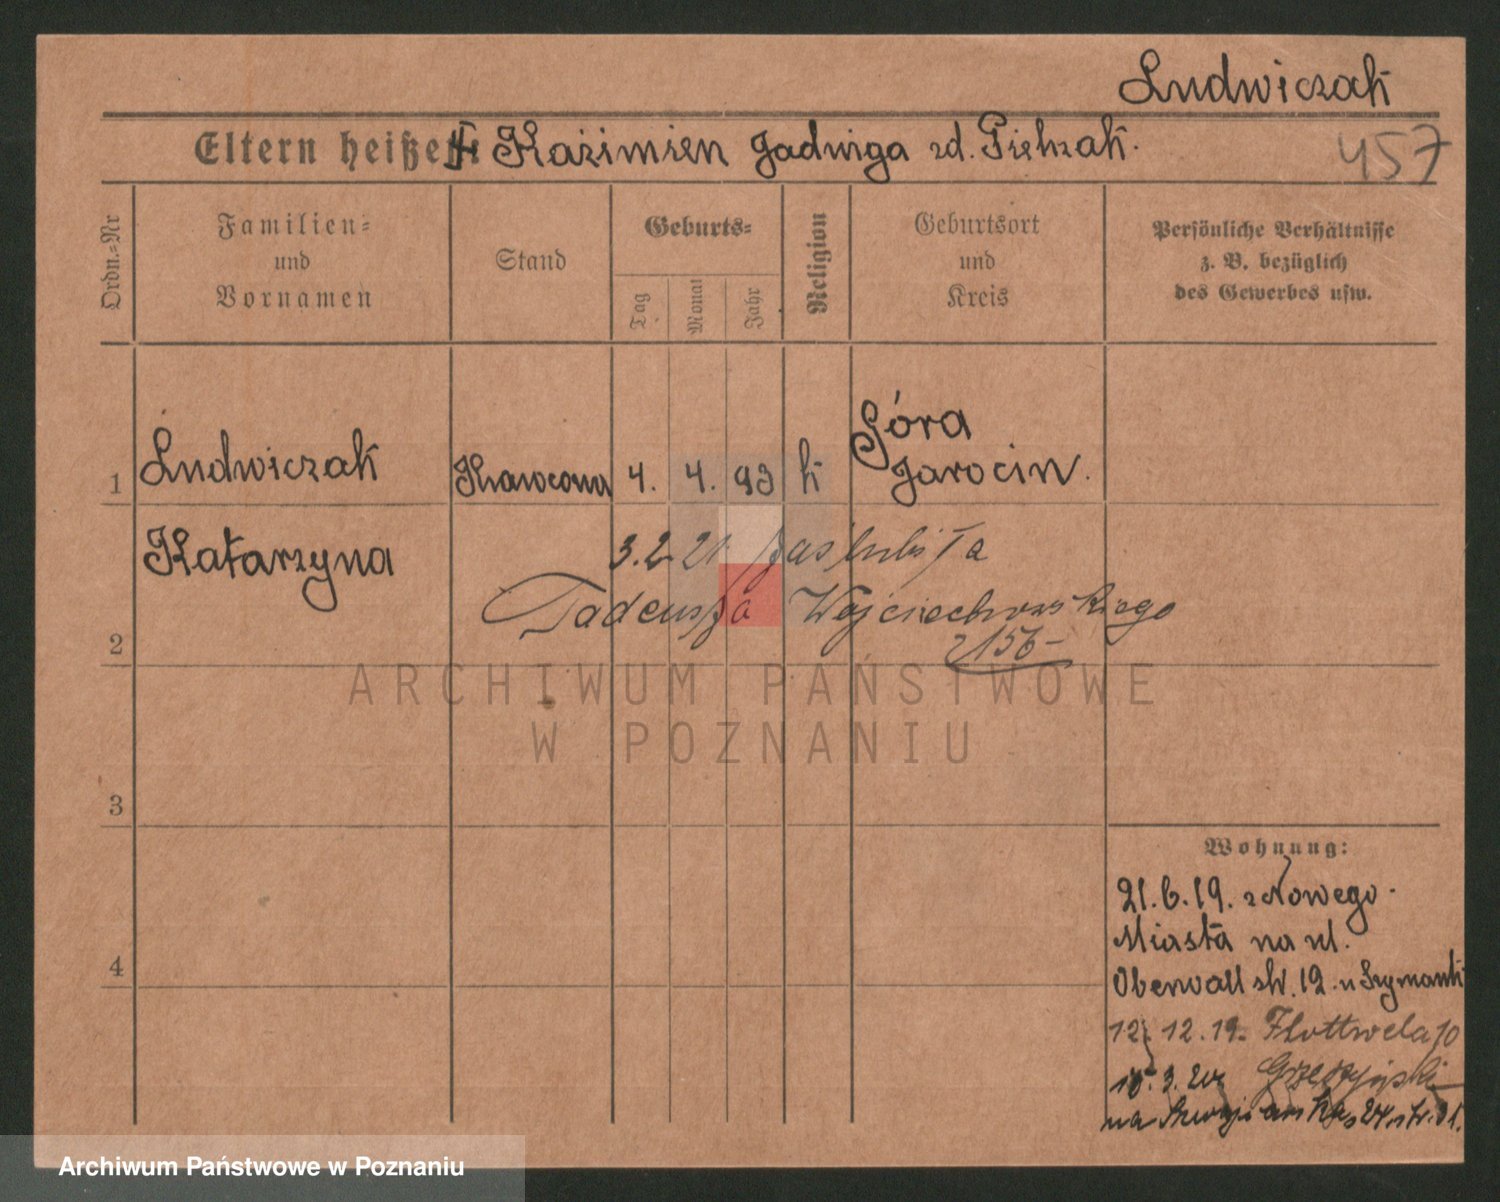 Ludwiczak
Eltern heißen: Kazimierz Jadwiga zd. Pielszak.
457
Ordn.-Nr
Familien-
und
Vornamen
Stand
Geburts-
Tag
Monat
Jahr
Religion
Geburtsort
und
Kreis
Persönliche Verhältnisse
z. B. bezüglich
des Gewerbes usw.
1
Ludwiczak
Krawcowa
4. 4. 93
k
Góra
Jarocin.
Katarzyna
3.2.21 zaślubiła
Tadeusza Wojciechowskiego
2156-
2
ARCHIWUM PAŃSTWOWE
W POZNANIU
3
4
Wohnung:
21.6.19. z Nowego
Miasta na ul.
Oberwall str. 12. u Szymank
12. 12. 19. Flottwela 10
15.3.20
na 24
Archiwum Państwowe w Poznaniu